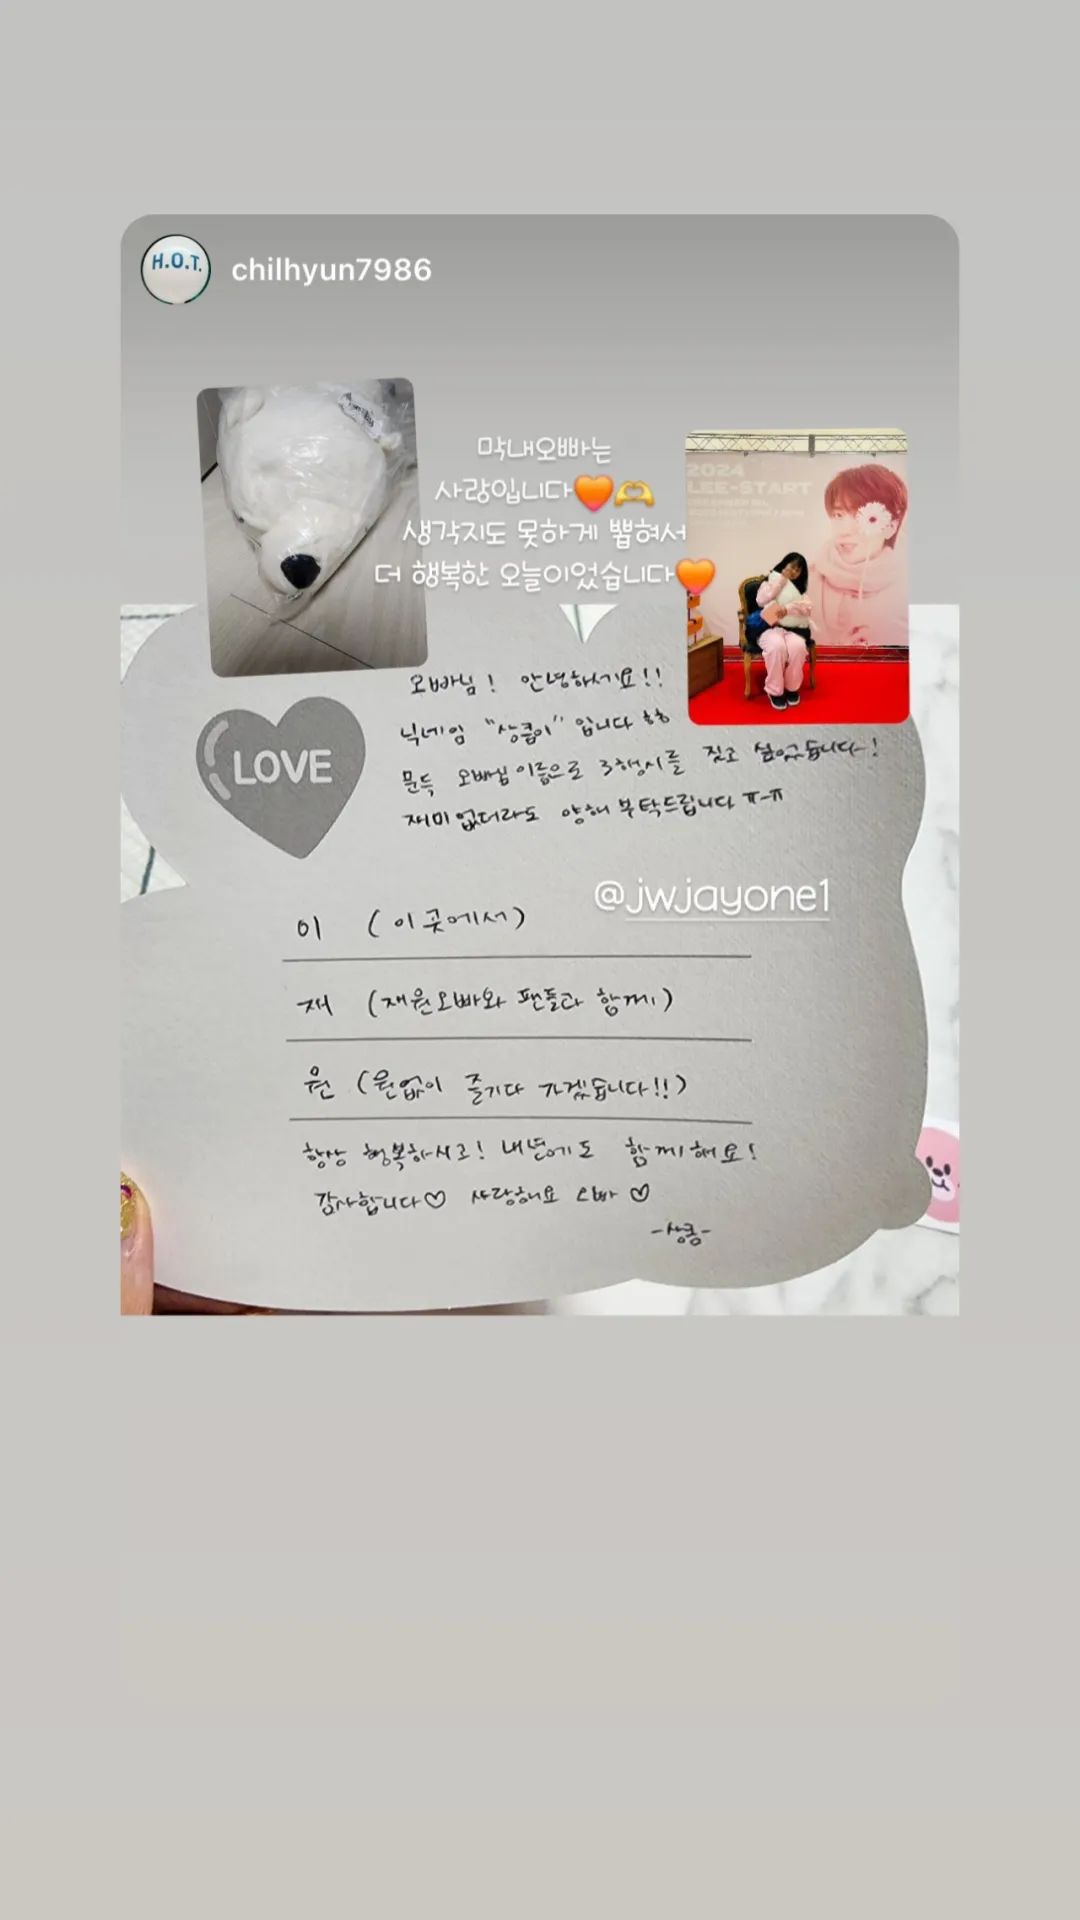 H.O.T.
chilhyun7986
막내오빠는
사랑입니다🧡🫶
생각지도 못하게 뽑혀서
더 행복한 오늘이었습니다🧡
2024
LEE-START
오빠님! 안녕하세요!!
닉네임 "상큼이" 입니다 ㅎㅎ
문득 오빠님 이름으로 3행시를 짓고 싶었습니다!
재미 없더라도 양해 부탁드립니다 ㅠ-ㅠ
LOVE
@jwjayone1
이 (이 곳에서)
재 (재원오빠와 팬들과 함께)
원 (원없이 즐기다 가겠습니다!!)
항상 행복하시고! 내년에도 함께해요!
감사합니다♡ 사랑해요 오빠 ♡
-상큼-